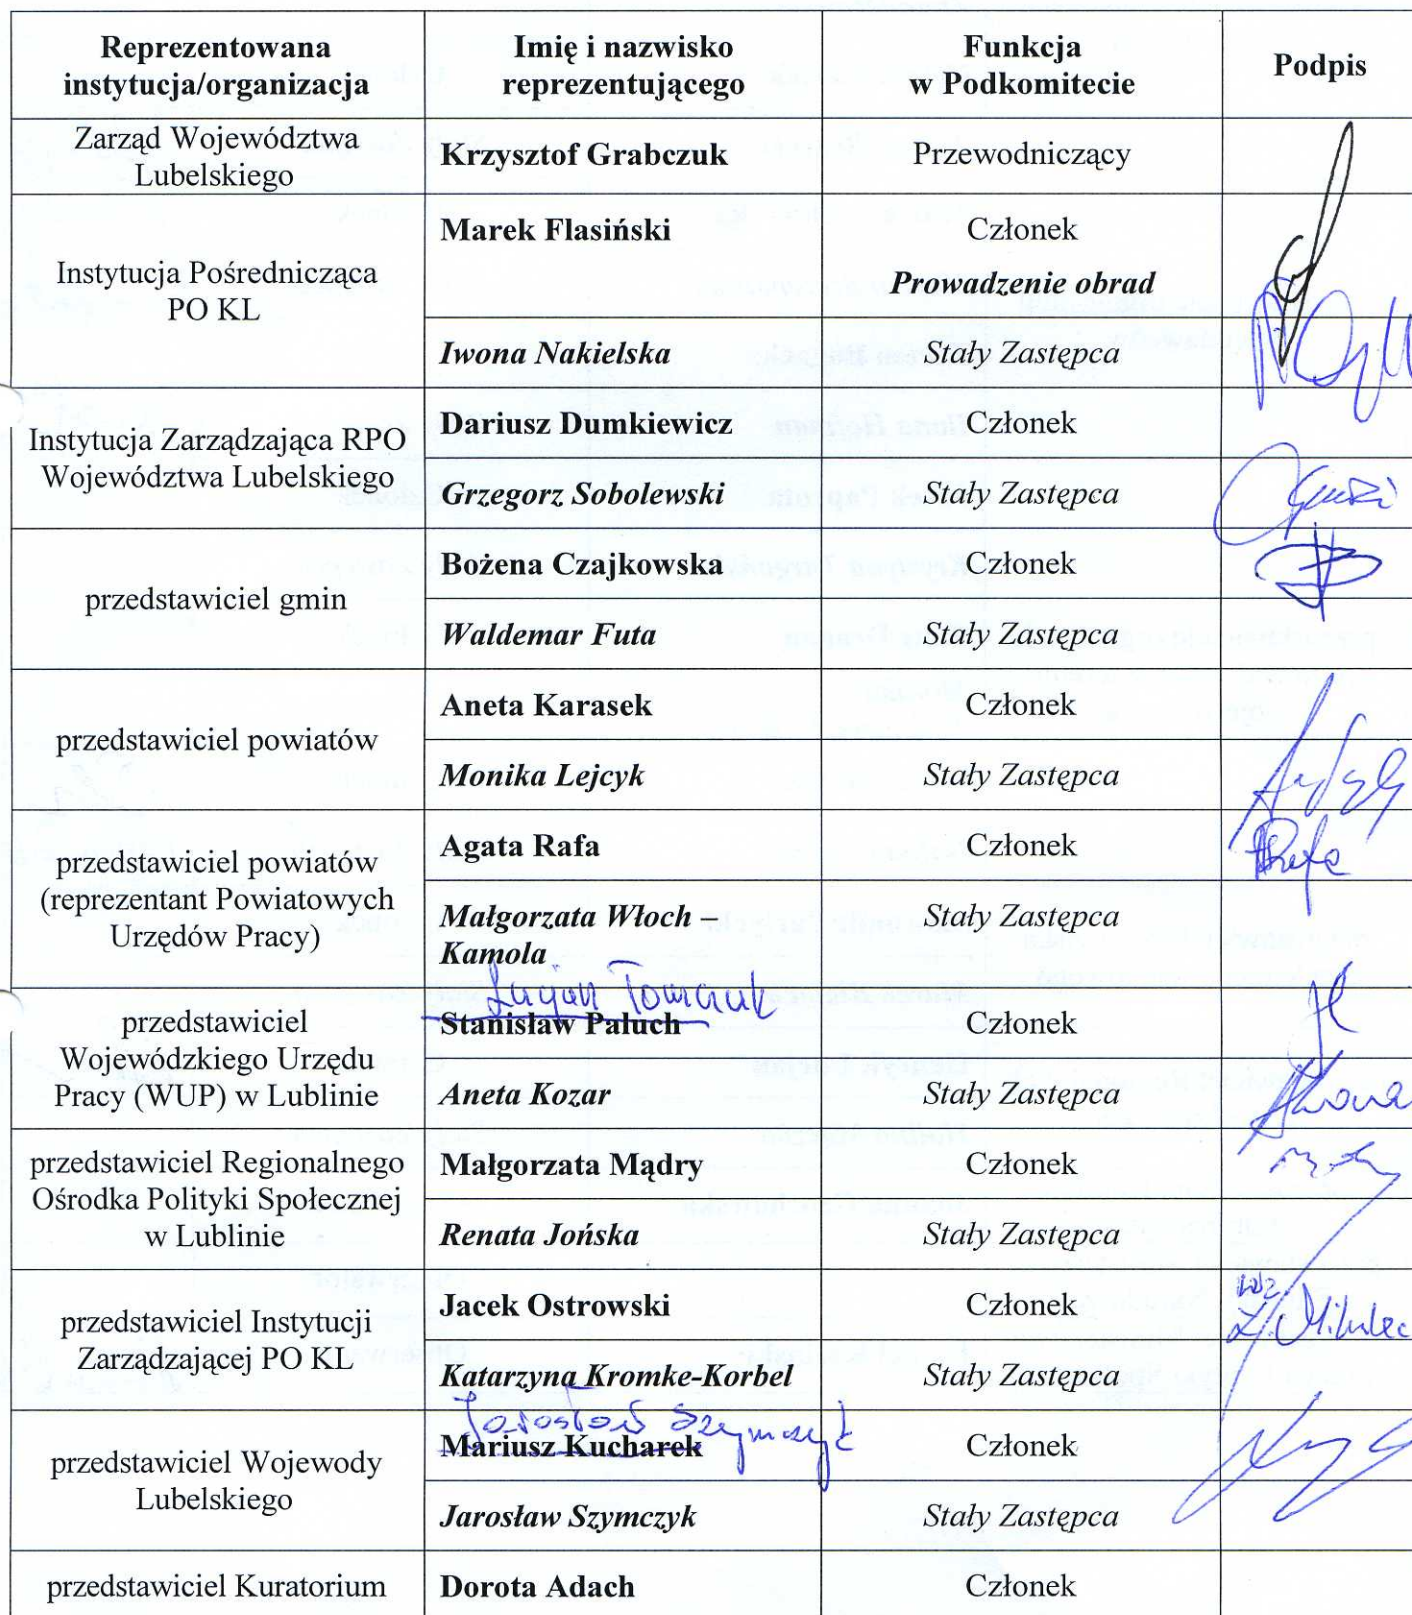 Reprezentowana instytucja/organizacja
Imię i nazwisko reprezentującego
Funkcja w Podkomitecie
Podpis
Zarząd Województwa Lubelskiego
Krzysztof Grabczuk
Przewodniczący
Instytucja Pośrednicząca PO KL
Marek Flasiński
Członek
Prowadzenie obrad
Iwona Nakielska
Stały Zastępca
Instytucja Zarządzająca RPO Województwa Lubelskiego
Dariusz Dumkiewicz
Członek
Grzegorz Sobolewski
Stały Zastępca
przedstawiciel gmin
Bożena Czajkowska
Członek
Waldemar Futa
Stały Zastępca
przedstawiciel powiatów
Aneta Karasek
Członek
Monika Lejcyk
Stały Zastępca
przedstawiciel powiatów (reprezentant Powiatowych Urzędów Pracy)
Agata Rafa
Członek
Małgorzata Włoch – Kamola
Stały Zastępca
przedstawiciel Wojewódzkiego Urzędu Pracy (WUP) w Lublinie
Stanisław Paluch
Członek
Aneta Kozar
Stały Zastępca
przedstawiciel Regionalnego Ośrodka Polityki Społecznej w Lublinie
Małgorzata Mądry
Członek
Renata Jońska
Stały Zastępca
przedstawiciel Instytucji Zarządzającej PO KL
Jacek Ostrowski
Członek
Katarzyna Kromke-Korbel
Stały Zastępca
przedstawiciel Wojewody Lubelskiego
Jarosław Szymczyk
Mariusz Kucharek
Członek
Jarosław Szymczyk
Stały Zastępca
przedstawiciel Kuratorium
Dorota Adach
Członek